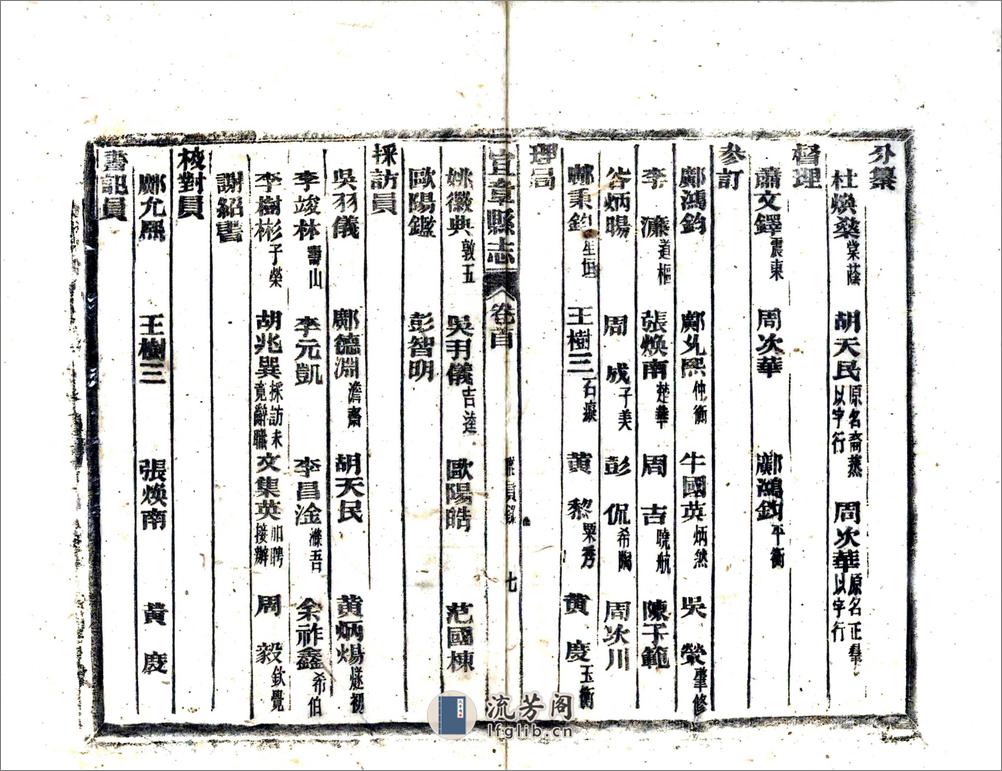 分纂
杜煥燊棠蔭 胡天民原名裔蒸以字行 周次華原名正羣以字行
督理
蕭文鐸震東 周次華 鄺鴻鈞平衡
參訂
鄺鴻鈞 鄺允熙仲衡 牛國英炳然 吳 榮肇修
李 濂道樞 張煥南楚華 周 吉曉航 陳子範
谷炳暘 周 成子美 彭 侃希陶 周次川
鄺秉鈞生垣 王樹三石濂 黃 黎栗秀 黃 慶玉衡
理局
宜章縣志 卷首 職員錄 七
姚徽典敦五 吳羽儀吉逵 歐陽皓 范國棟
歐陽鑑 彭智明
採訪員
吳羽儀 鄺德淵澹齋 胡天民 黃炳煬燧初
李竣林壽山 李元凱 李昌淦濂吾 余祚鑫希伯
李樹彬子榮 胡兆巽採訪未竟辭職 文集英加聘接辦 周 毅欽覺
謝紹書
校對員
鄺允熙 王樹三 張煥南 黃 慶
書記員
流芳阁
lfglib.cn